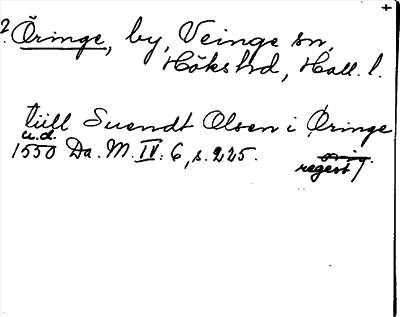 ? Öringe, by, Veinge sn,
Höks hd, Hall. l.
tiill Suendt Olsen i Øringe
u.d.
1550 Da. M. IV: 6, s. 225.
regest